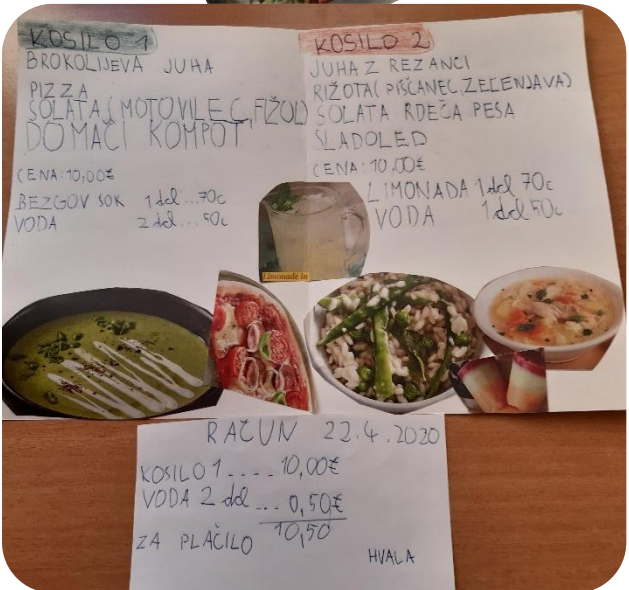 KOSILO 1
BROKOLIJEVA JUHA
PIZZA
SOLATA (MOTOVILEC, FIŽOL)
DOMAČI KOMPOT
CENA: 10,00€
BEZGOV SOK 1 del ...70c
VODA 2 del ... 50c
KOSILO 2
JUHA Z REZANCI
RIŽOTA( PIŠČANEC, ZELENJAVA)
SOLATA RDEČA PESA
SLADOLED
CENA: 10,00€
LIMONADA 1 del 70c
VODA 1 del 50c
Limonade in
RAČUN 22.4.2020
KOSILO 1 .... 10,00€
VODA 2 del ... 0,50€
ZA PLAČILO 10,50
HVALA